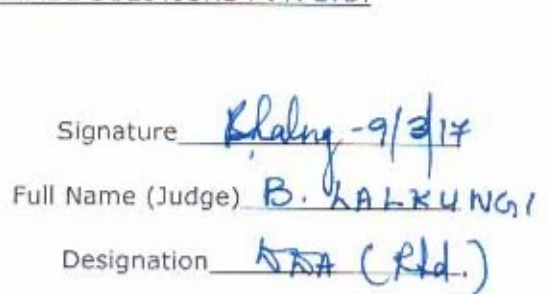 Signature -9/3/17
Full Name (Judge) B. LALKUNGI
Designation DDA (Rtd.)